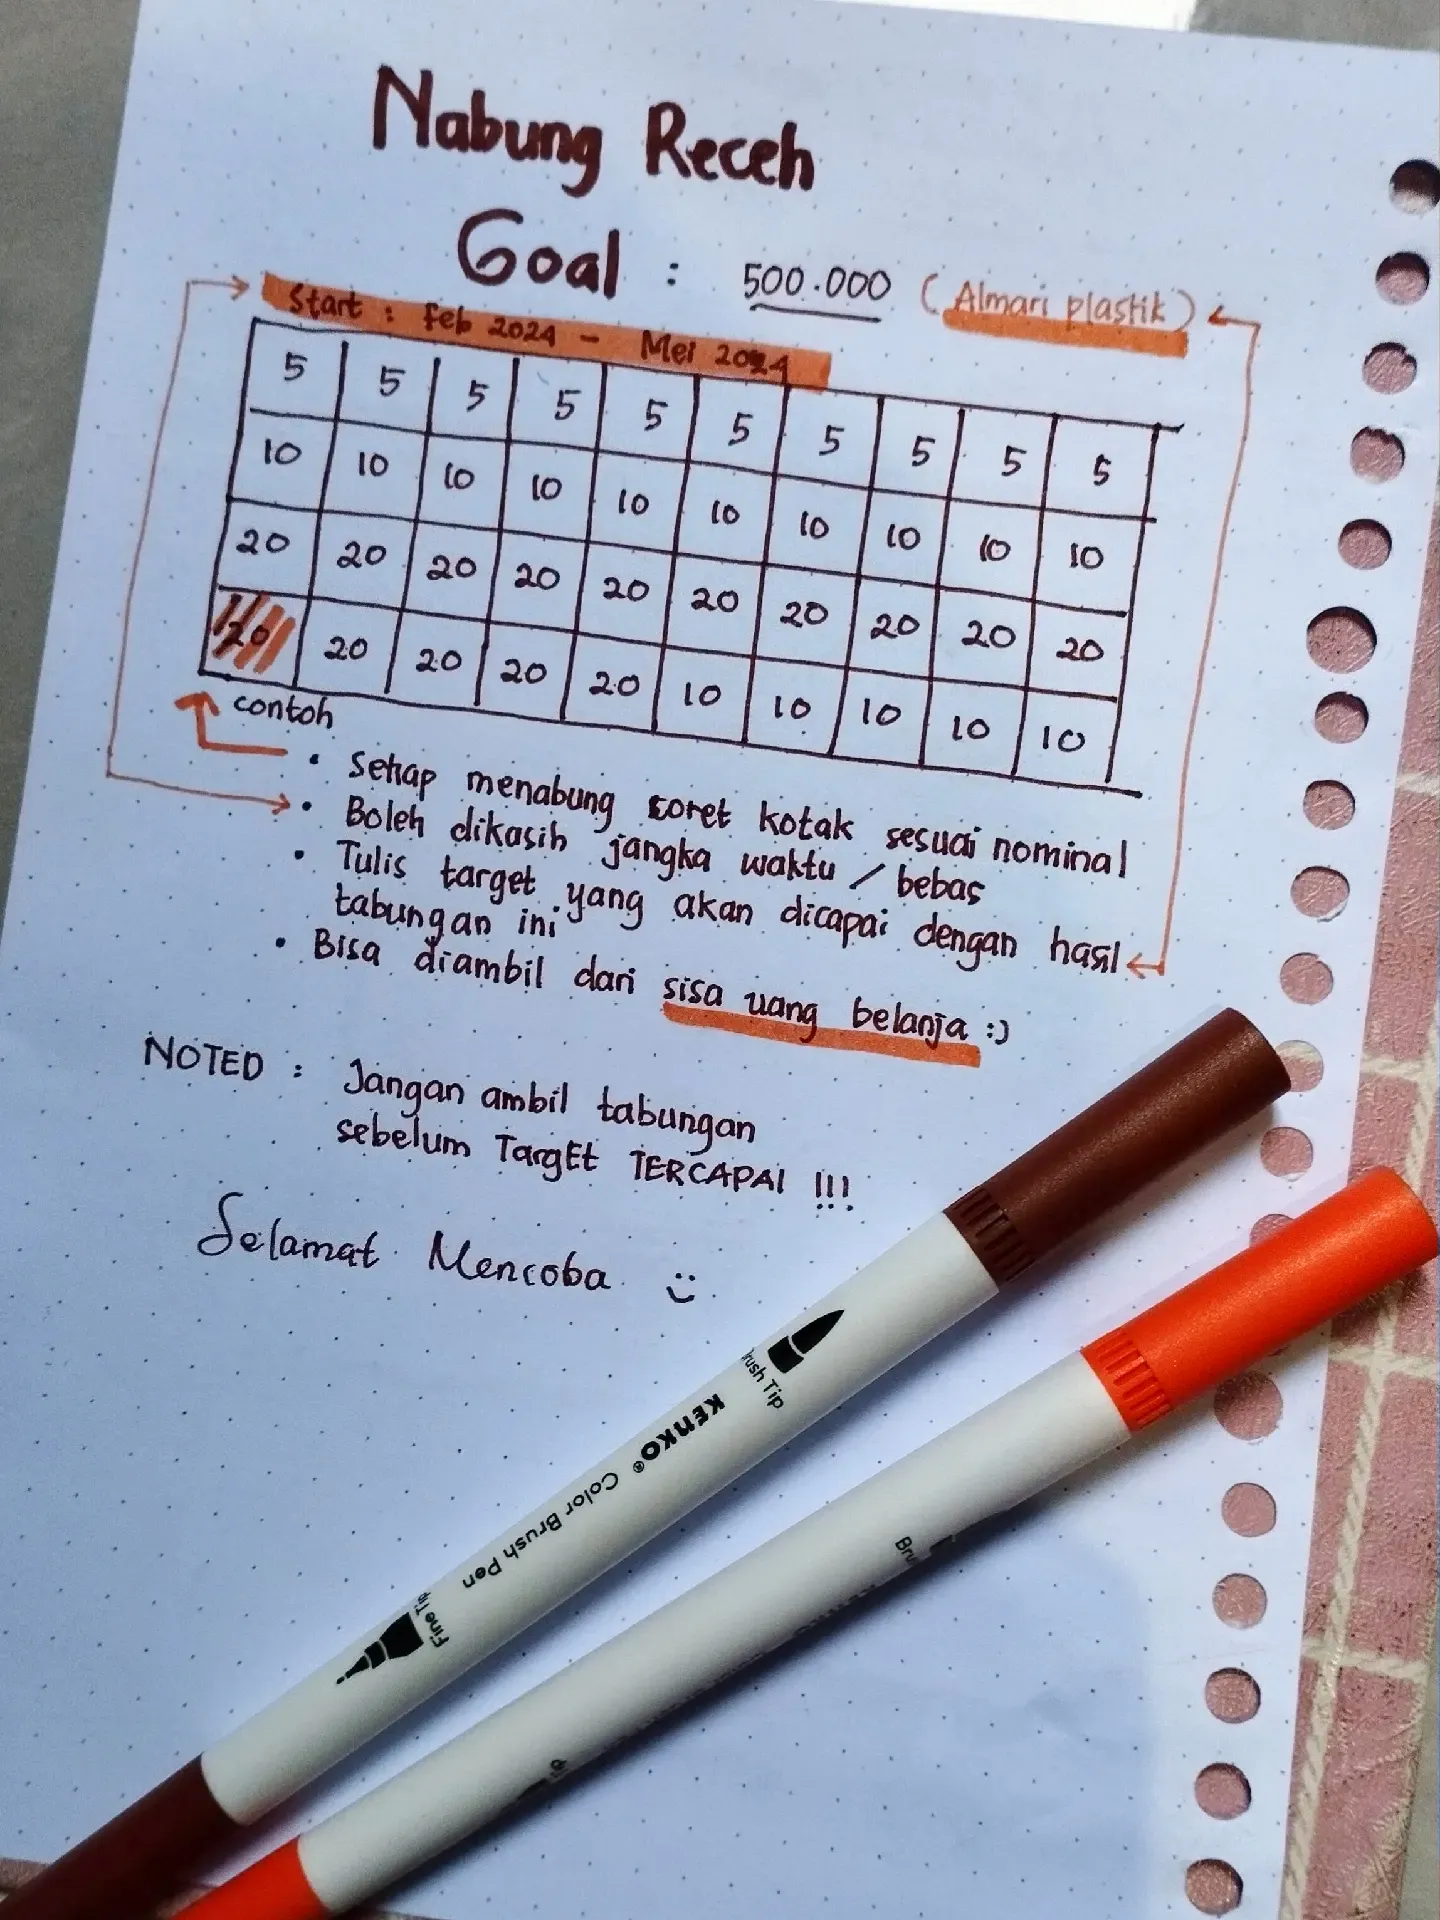 Nabung Receh
Goal : 500.000 (Almari plastik)
Start : Feb 2024 - Mei 2024
5 5 5 5 5 5 5 5 5 5
10 10 10 10 10 10 10 10 10 10
20 20 20 20 20 20 20 20 20 20
20 20 20 20 20 10 10 10 10 10
contoh
• Setiap menabung coret kotak sesuai nominal
• Boleh dikasih jangka waktu / bebas
• Tulis target yang akan dicapai dengan hasil
tabungan ini
• Bisa diambil dari sisa uang belanja :)
NOTED : Jangan ambil tabungan
sebelum TargEt TERCAPAI !!!
Selamat Mencoba
Brush Tip
KENKO® Color Brush Pen
Fine Tip